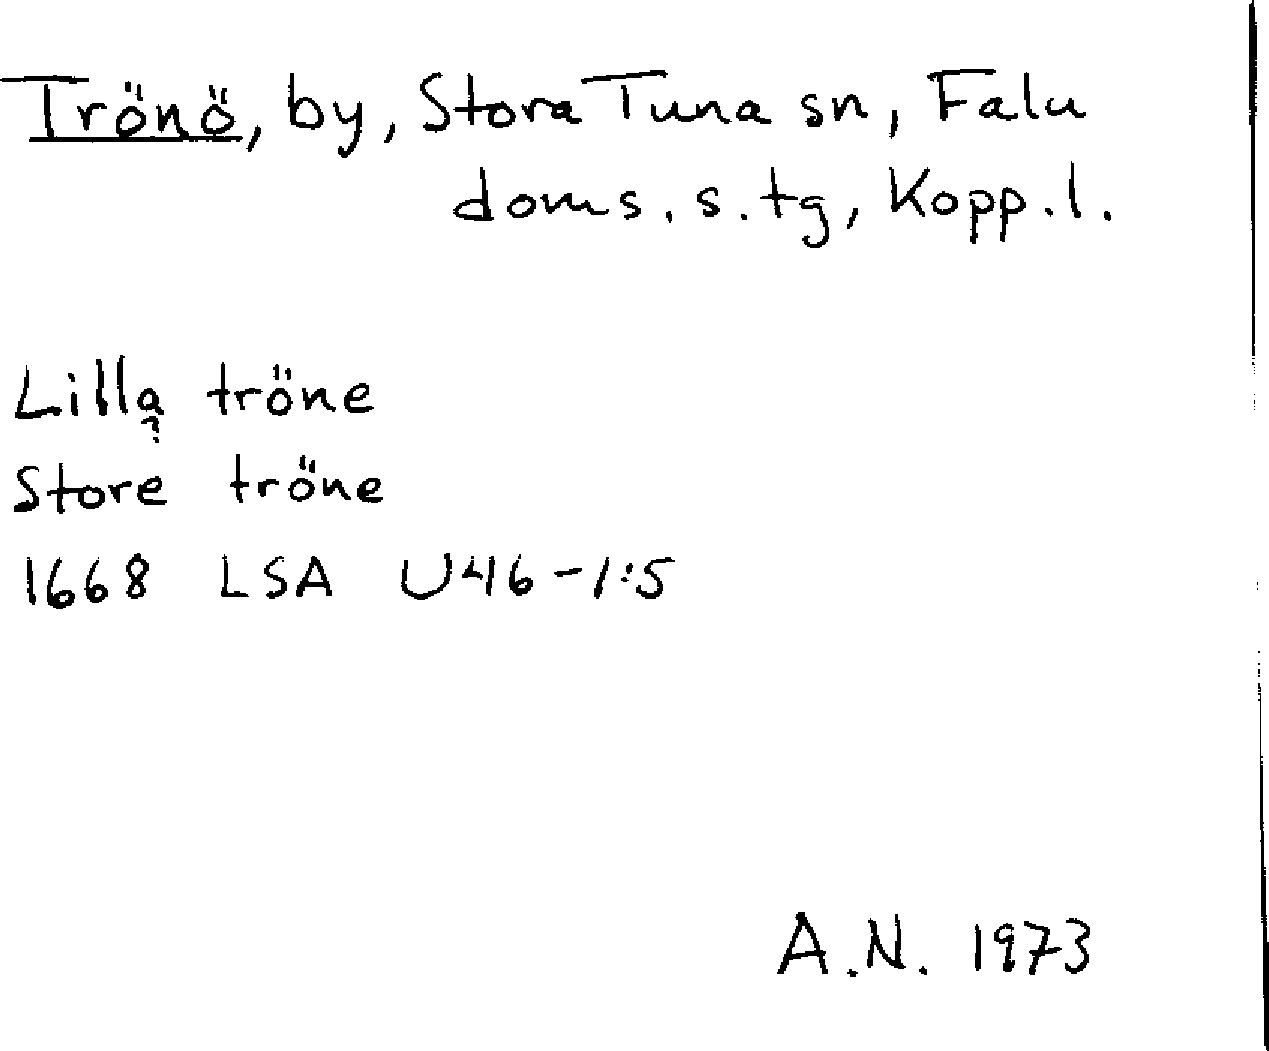 Trönö, by, Stora Tuna sn, Falu
doms. s. tg, Kopp. l.
Lilla tröne
?
Store tröne
1668 LSA U46-1:5
A.N. 1973